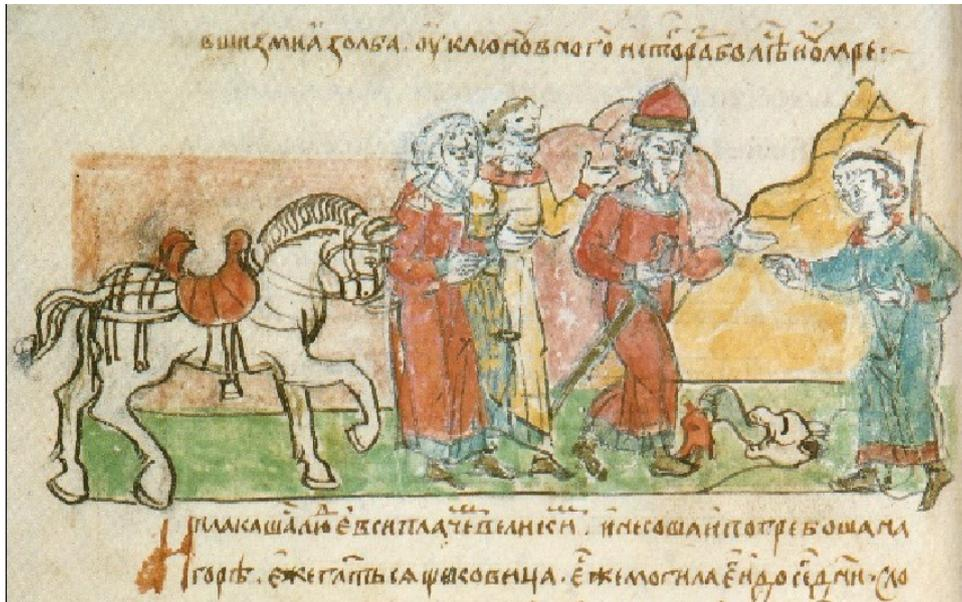 вши змиꙗ ꙁо лба . оуклюну в ногоу и с того раꙁболѣ и оумре :
И плакашасѧ людⷷе вси плачем великим . и несоша и погребоша на
горѣ . еже гл҃тьсѧ щековица . е҃ же могила е҃ и до се дн҃и . сло